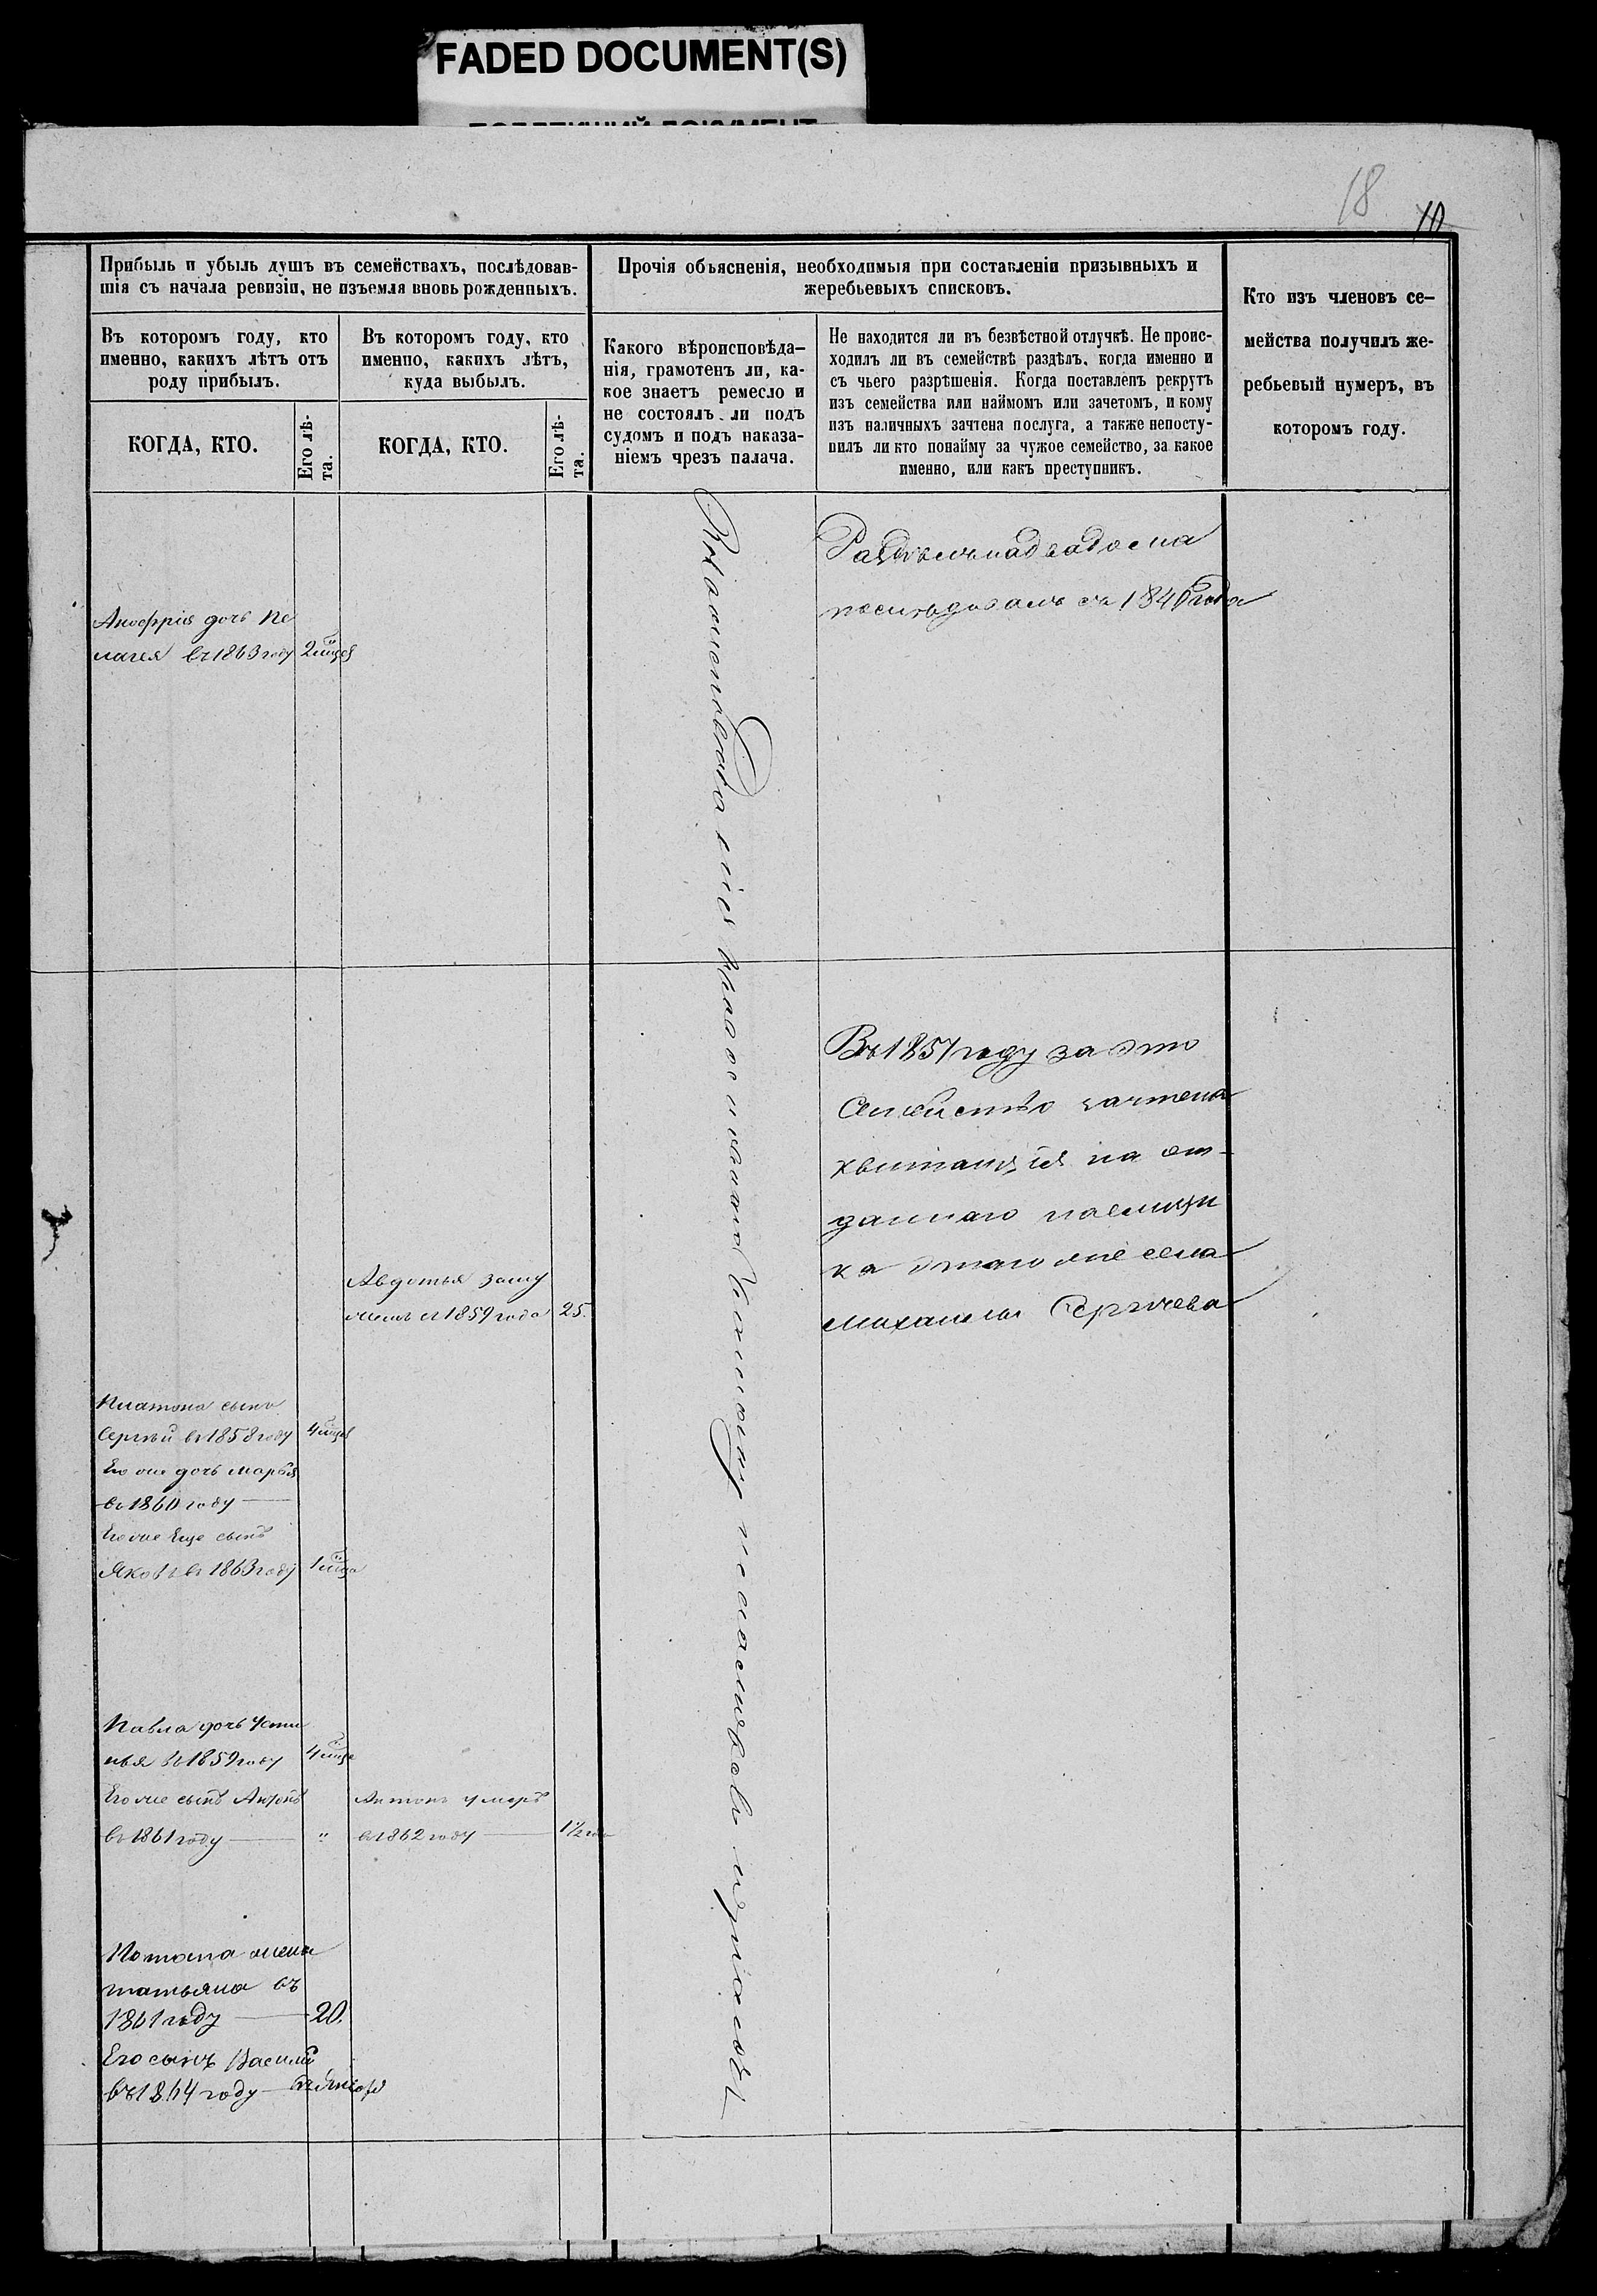 FADED DOCUMENT(S)
18
10
Прибыль и убыль душъ въ семействахъ, послѣдовав-
шія съ начала ревизіи, не изъемля вновь рожденныхъ.
Въ которомъ году, кто
именно, какихъ лѣтъ отъ
роду прибылъ.
КОГДА, КТО.
Его лѣ-
та.
Въ которомъ году, кто
именно, какихъ лѣтъ,
куда выбылъ.
КОГДА, КТО.
Его лѣ-
та.
Прочія объясненія, необходимыя при составленіи призывныхъ и
жеребьевыхъ списковъ.
Какого вѣроисповѣда-
нія, грамотенъ ли, ка-
кое знаетъ ремесло и
не состоялъ ли подъ
судомъ и подъ наказа-
ніемъ чрезъ палача.
Не находится ли въ безвѣстной отлучкѣ. Не проис-
ходилъ ли въ семействѣ раздѣлъ, когда именно и
съ чьего разрѣшенія. Когда поставленъ рекрутъ
изъ семейства или наймомъ или зачетомъ, и кому
изъ наличныхъ зачтена послуга, а также непосту-
пилъ ли кто понайму за чужое семейство, за какое
именно, или какъ преступникъ.
Кто изъ членовъ се-
мейства получилъ же-
ребьевый нумеръ, въ
которомъ году.
Аноѳрія дочь Пе
лагея въ 1863 году
Раздѣлъ на два дома
послѣдовалъ съ 1840 года
Въ 1857 году за это
Семейство зачтена
квитанція на от-
даннаго наемщи
ка этаго же села
Михаила Сергѣева
Авдотья заму
жемъ съ 1859 года 25.
Платона сынъ
Сергѣй въ 1858 году
Его же дочь Марья
въ 1860 году
Его же еще сынъ
Яковъ въ 1863 году
Павла дочь Усти
нья въ 1859 году
Его же сынъ Антонъ
въ 1861 году "
Антонъ умеръ
въ 1862 году 1½ го
Потапа жена
Татьяна въ
1861 году 20.
Его сынъ Василій
въ 1864 году